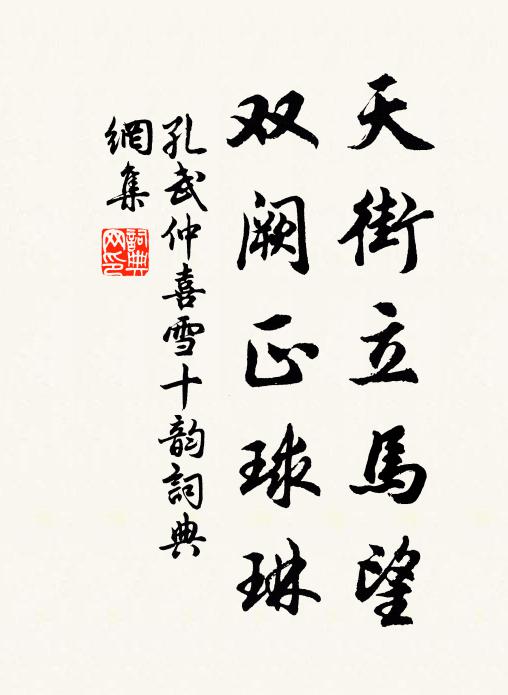 天街立馬望
双阙正球琳
孔武仲喜雪十韵詞典
網集
詞典网印